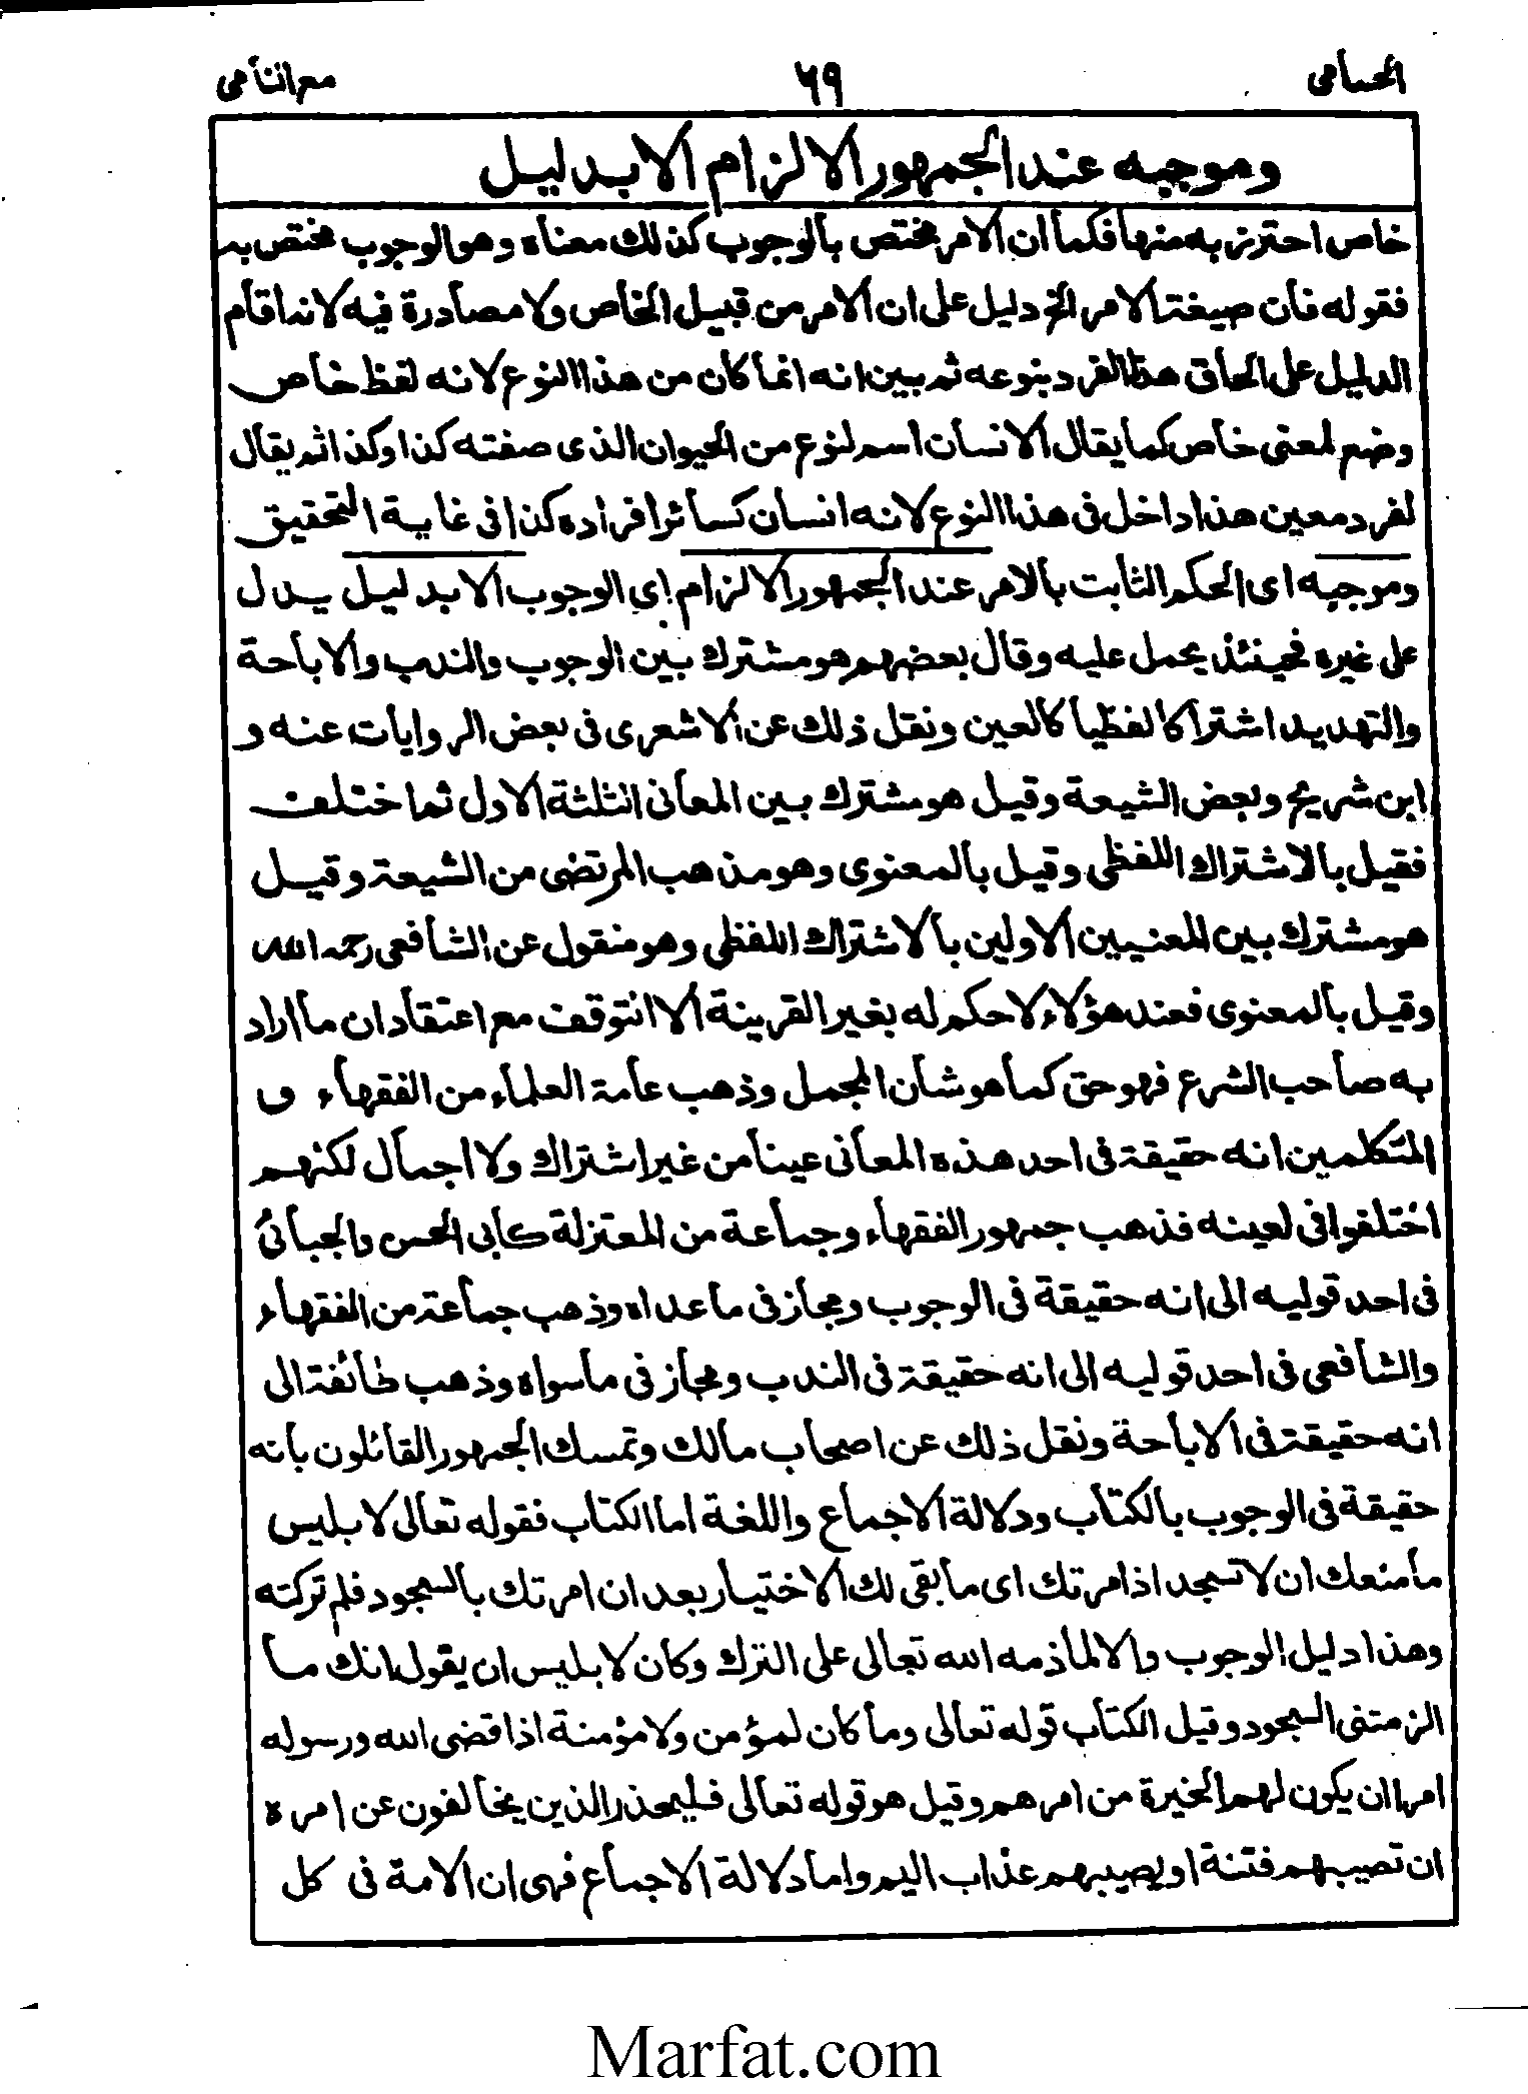 الحسامی ۶۹ مع النامی
وموجبه عند الجمهور الالزام الا بدلیل
خاص احترز به منها فكما ان الامر مختص بالوجوب كذلك معناه وهو الوجوب مختص به
فقوله فان صیغة الامر الخ دلیل علی ان الامر من قبیل الخاص ولا مصادرة فیه لانه اقام
الدلیل علی الحاق هذا الفرد بنوعه ثم بین انه انما كان من هذا النوع لانه لفظ خاص
وضع لمعنی خاص كما یقال الانسان اسم لنوع من الحیوان الذی صفته كذا وكذا ثم یقال
لفرد معین هذا داخل فی هذا النوع لانه انسان كسائر افراده كذا فی غایة التحقیق
وموجبه ای الحكم الثابت بالامر عند الجمهور الالزام ای الوجوب الا بدلیل یدل
علی غیره فحینئذ یحمل علیه وقال بعضهم هو مشترك بین الوجوب والندب والاباحة
والتهدید اشتراكا لفظیا كالعین ونقل ذلك عن الاشعری فی بعض الروایات عنه و
ابن شریح وبعض الشیعة وقیل هو مشترك بین المعانی الثلثة الاول ثم اختلف
فقیل بالاشتراك اللفظی وقیل بالمعنوی وهو مذهب المرتضی من الشیعة وقیل
هو مشترك بین المعنیین الاولین بالاشتراك اللفظی وهو منقول عن الشافعی رحمه الله
وقیل بالمعنوی فعند هؤلاء لا حكم له بغیر القرینة الا التوقف مع اعتقاد ان ما اراد
به صاحب الشرع فهو حق كما هو شان المجمل وذهب عامة العلماء من الفقهاء و
المتكلمین انه حقیقة فی احد هذه المعانی عینا من غیر اشتراك ولا اجمال لكنهم
اختلفوا فی لعینه فذهب جمهور الفقهاء وجماعة من المعتزلة كابی الحسن والجبائی
فی احد قولیه الی انه حقیقة فی الوجوب ومجاز فی ما عداه وذهب جماعة من الفقهاء
والشافعی فی احد قولیه الی انه حقیقة فی الندب ومجاز فی ما سواه وذهب طائفة الی
انه حقیقة فی الاباحة ونقل ذلك عن اصحاب مالك وتمسك الجمهور القائلون بانه
حقیقة فی الوجوب بالكتاب ودلالة الاجماع واللغة اما الكتاب فقوله تعالی لابلیس
ما منعك ان لا تسجد اذ امرتك ای ما بقی لك الاختیار بعد ان امرتك بالسجود فلم تركته
وهذا دلیل الوجوب والا لما ذمه الله تعالی علی الترك وكان لابلیس ان یقول انك ما
الزمتنی السجود وقیل الكتاب قوله تعالی وما كان لمؤمن ولا مؤمنة اذا قضی الله ورسوله
امرا ان یكون لهم الخیرة من امرهم وقیل هو قوله تعالی فلیحذر الذین یخالفون عن امره
ان تصیبهم فتنة او یصیبهم عذاب الیم واما دلالة الاجماع فهی ان الامة فی كل
Marfat.com